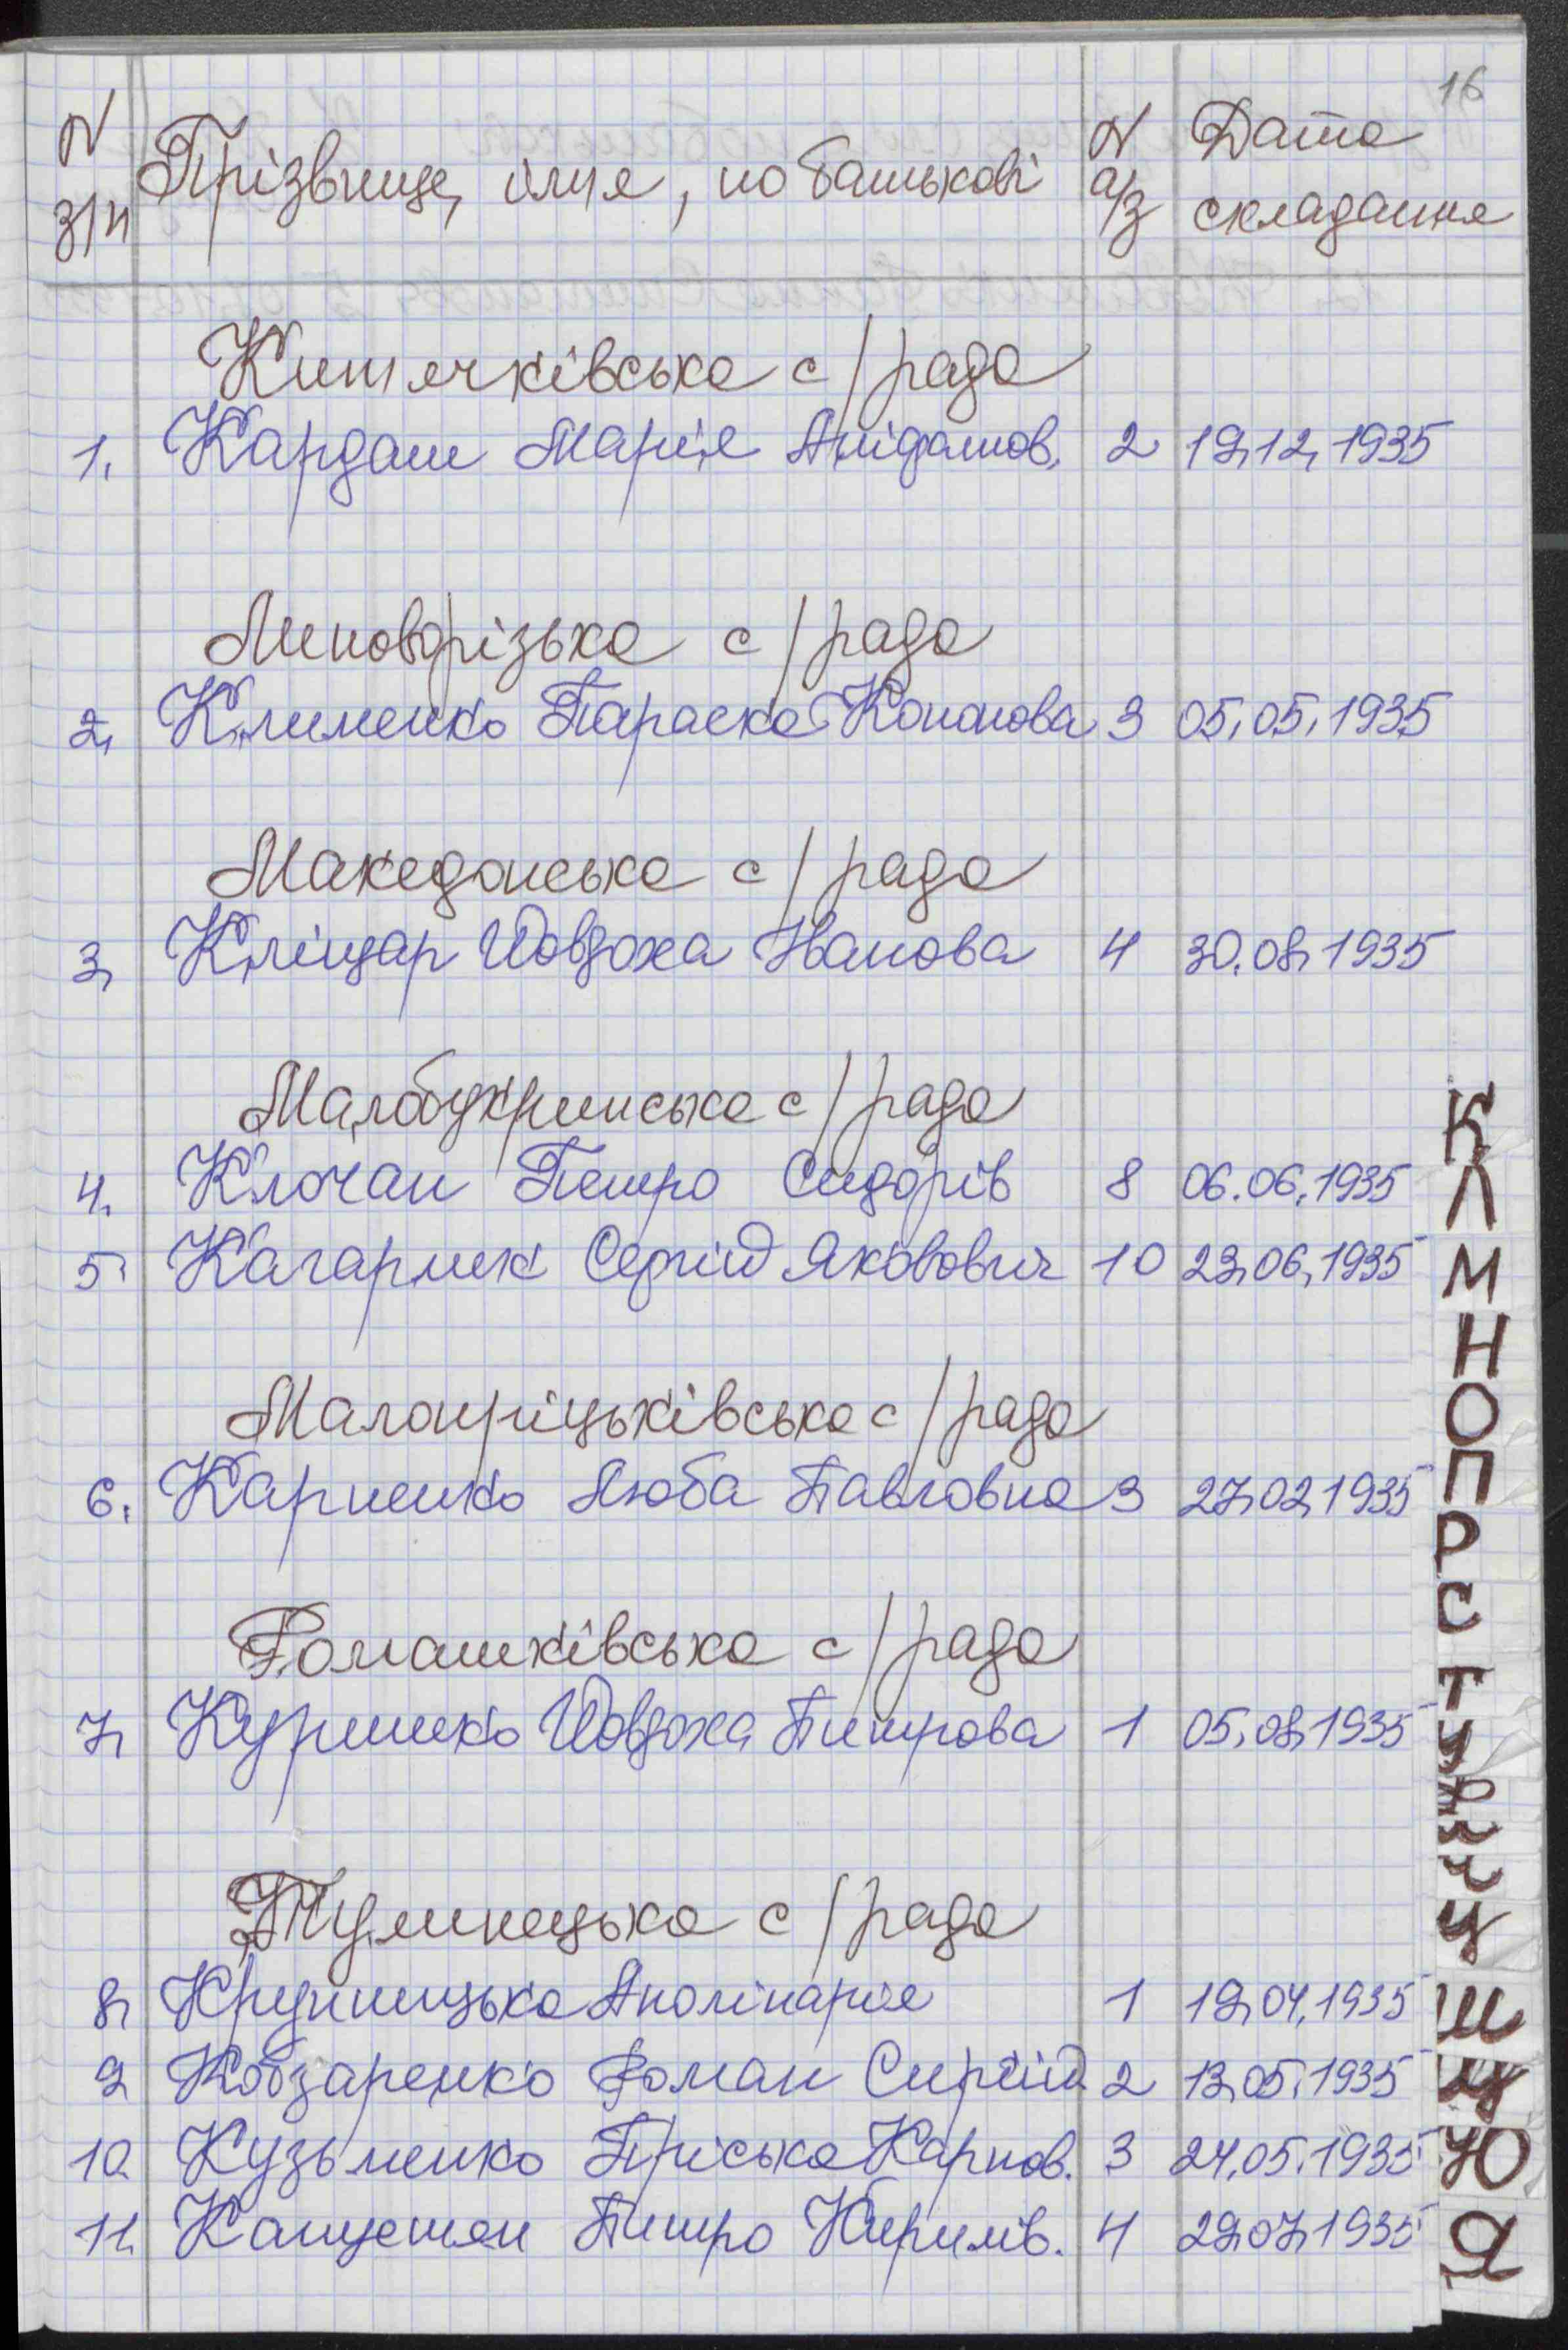 16
N з/п Прізвище, ім'я, по батькові N а/з Дата складання
Кип'ячківська с/рада
1. Кардаш Марія Аніфантов. 2 19.12.1935
Липоворізька с/рада
2. Клименко Параска Кононова 3 05.05.1935
Македонська с/рада
3. Кліщар Йовдоха Іванова 4 30.08.1935
Малобукринська с/рада
4. Клочан Петро Сидорів 8 06.06.1935
5. Кагарлик Сергій Якович 10 23.06.1935
Малоприцьківська с/рада
6. Карпенко Люба Павловна 3 27.02.1935
Ромашківська с/рада
7. Куриленко Йовдоха Питрова 1 05.08.1935
Тулинецька с/рада
8. Крупницька Аполінарія 1 19.04.1935
9. Кобзаренко Роман Сиргій 2 13.05.1935
10. Кузьменко Пріська Карпов. 3 24.05.1935
11. Капустян Питро Кирилів. 4 29.07.1935
К
Л
М
Н
О
П
Р
С
Т
У
Ф
Х
Ч
Ц
Ш
Щ
Ю
Я